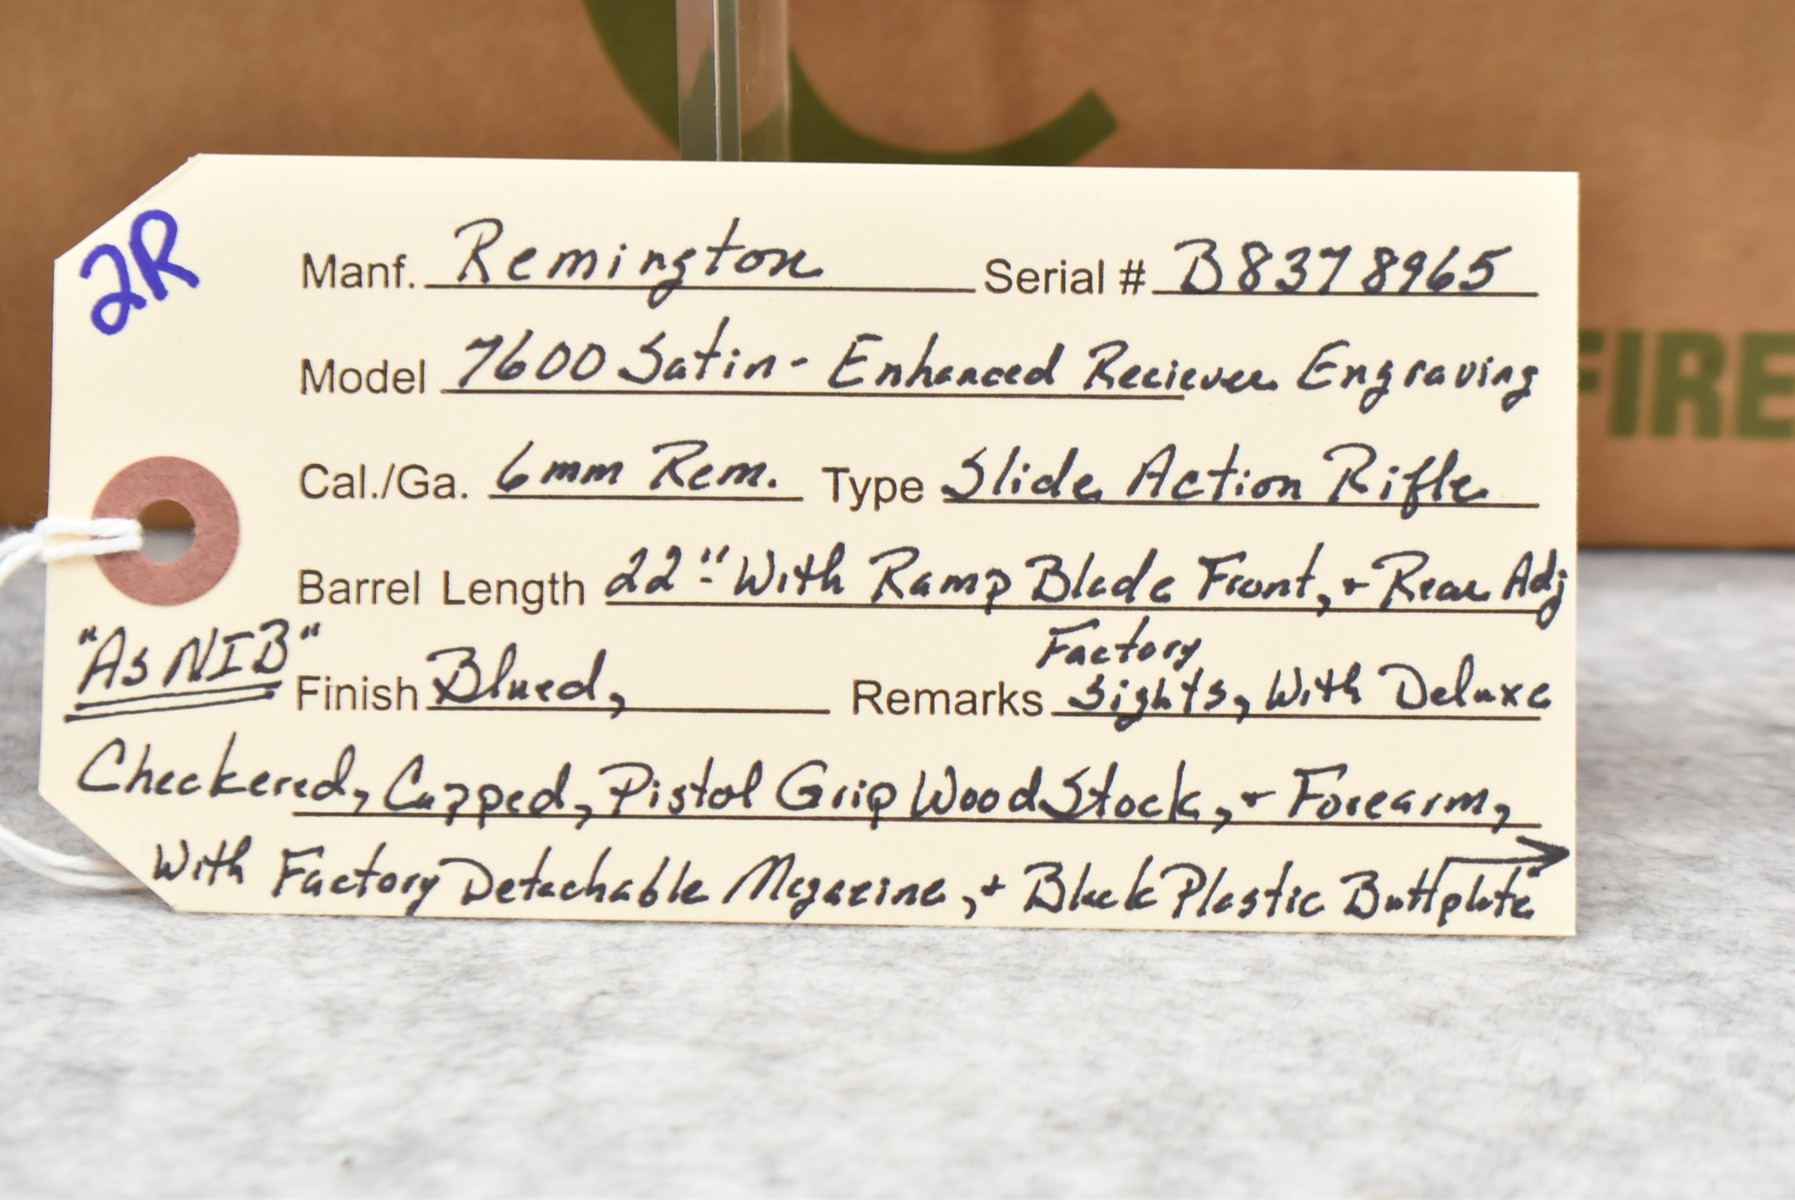 2R
Manf. Remington Serial # B8378965
Model 7600 Satin - Enhanced Reciever Engraving
Cal./Ga. 6mm Rem. Type Slide Action Rifle
Barrel Length 22" With Ramp Blade Front, + Rear Adj
"As NIB"
Finish Blued, Remarks Factory Sights, With Deluxe
Checkered, Capped, Pistol Grip Wood Stock, + Forearm,
With Factory Detachable Magazine, + Black Plastic Buttplate →
FIRE